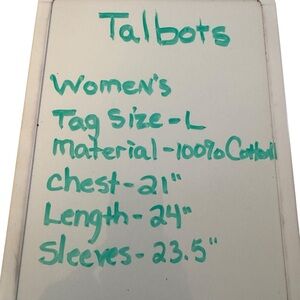 Talbots
Women's
Tag Size - L
Material - 100% Cotton
Chest - 21"
Length - 24"
Sleeves - 23.5"